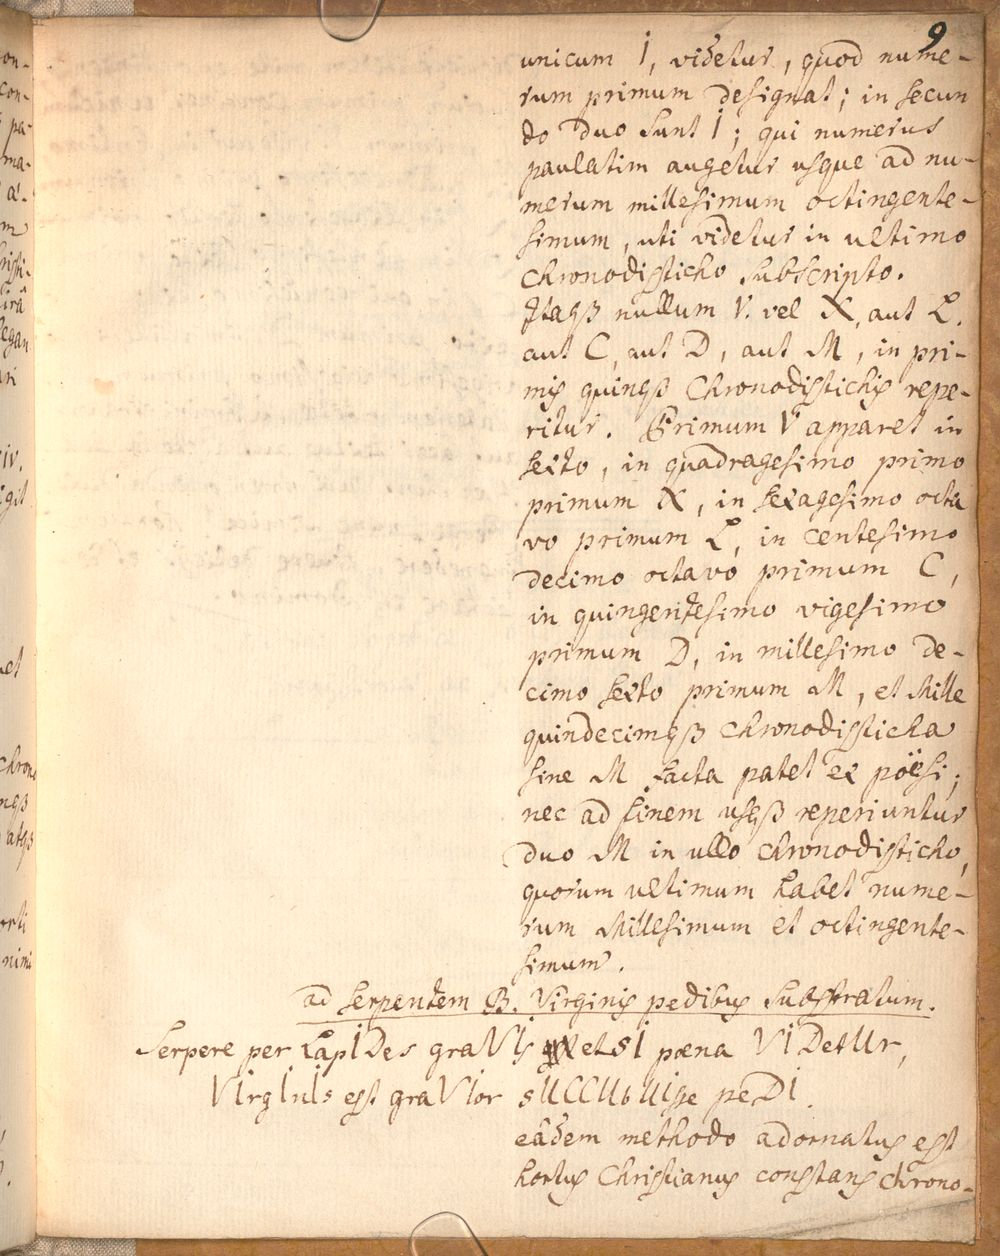 9
unicum I, videtur, quod nume-
rum primum designat; in secun
do duo sunt I; qui numerus
paulatim augetur usque ad nu-
merum millesimum octingente-
simum, uti videtur in ultimo
Chronodisticho subscripto.
Itaqß nullum V. vel X, aut L.
aut C, aut D, aut M, in pri-
mis quinqß Chronodistichis repe-
ritur. Primum V apparet in
sexto, in quadragesimo primo
primum X, in sexagesimo octa
vo primum L, in centesimo
decimo octavo primum C,
in quingentesimo vigesimo
primum D, in millesimo de-
cimo sexto primum M, et Mille
quindecimqß Chronodisticha
sine M facta patet ex poësi;
nec ad finem usqß reperiuntur
duo M in ullo chronodisticho,
quorum ultimum habet nume-
rum Millesimum et octingente-
simum.
ad serpentem B. Virginis pedibus substratum.
Serpere per LapIDes graVIs etsI pœna VIDetUr,
VIrgInIs est graVIor sUCCUbUIsse peDI.
eâdem methodo adornatus est
hortus Christianus constans chrono-